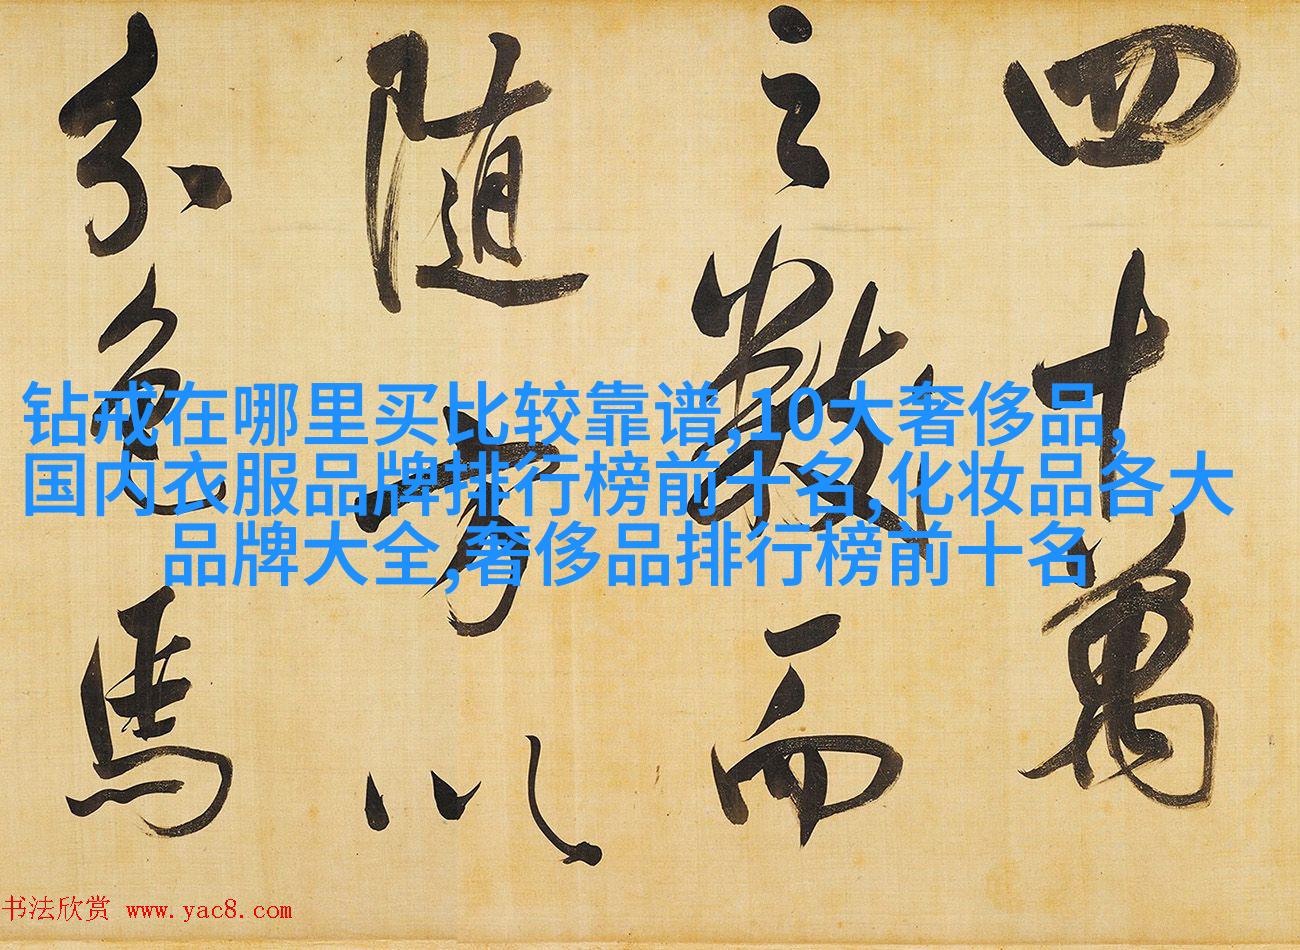 四十萬
之數而
隨方以
分色馬
钻戒在哪里买比较靠谱,10大奢侈品,
国内衣服品牌排行榜前十名,化妆品各大
品牌大全,奢侈品排行榜前十名
书法欣赏 www.yac8.com